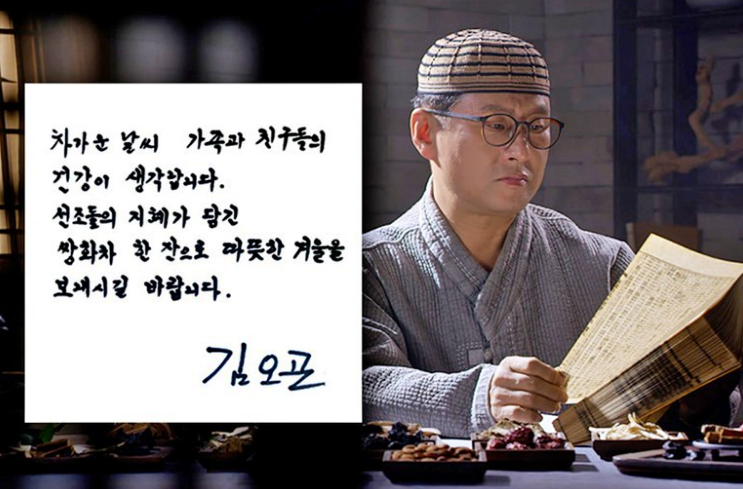 차가운 날씨 가족과 친구들의
건강이 생각합니다.
선조들의 지혜가 담긴
쌍화차 한 잔으로 따뜻한 겨울을
보내시길 바랍니다.
김오곤